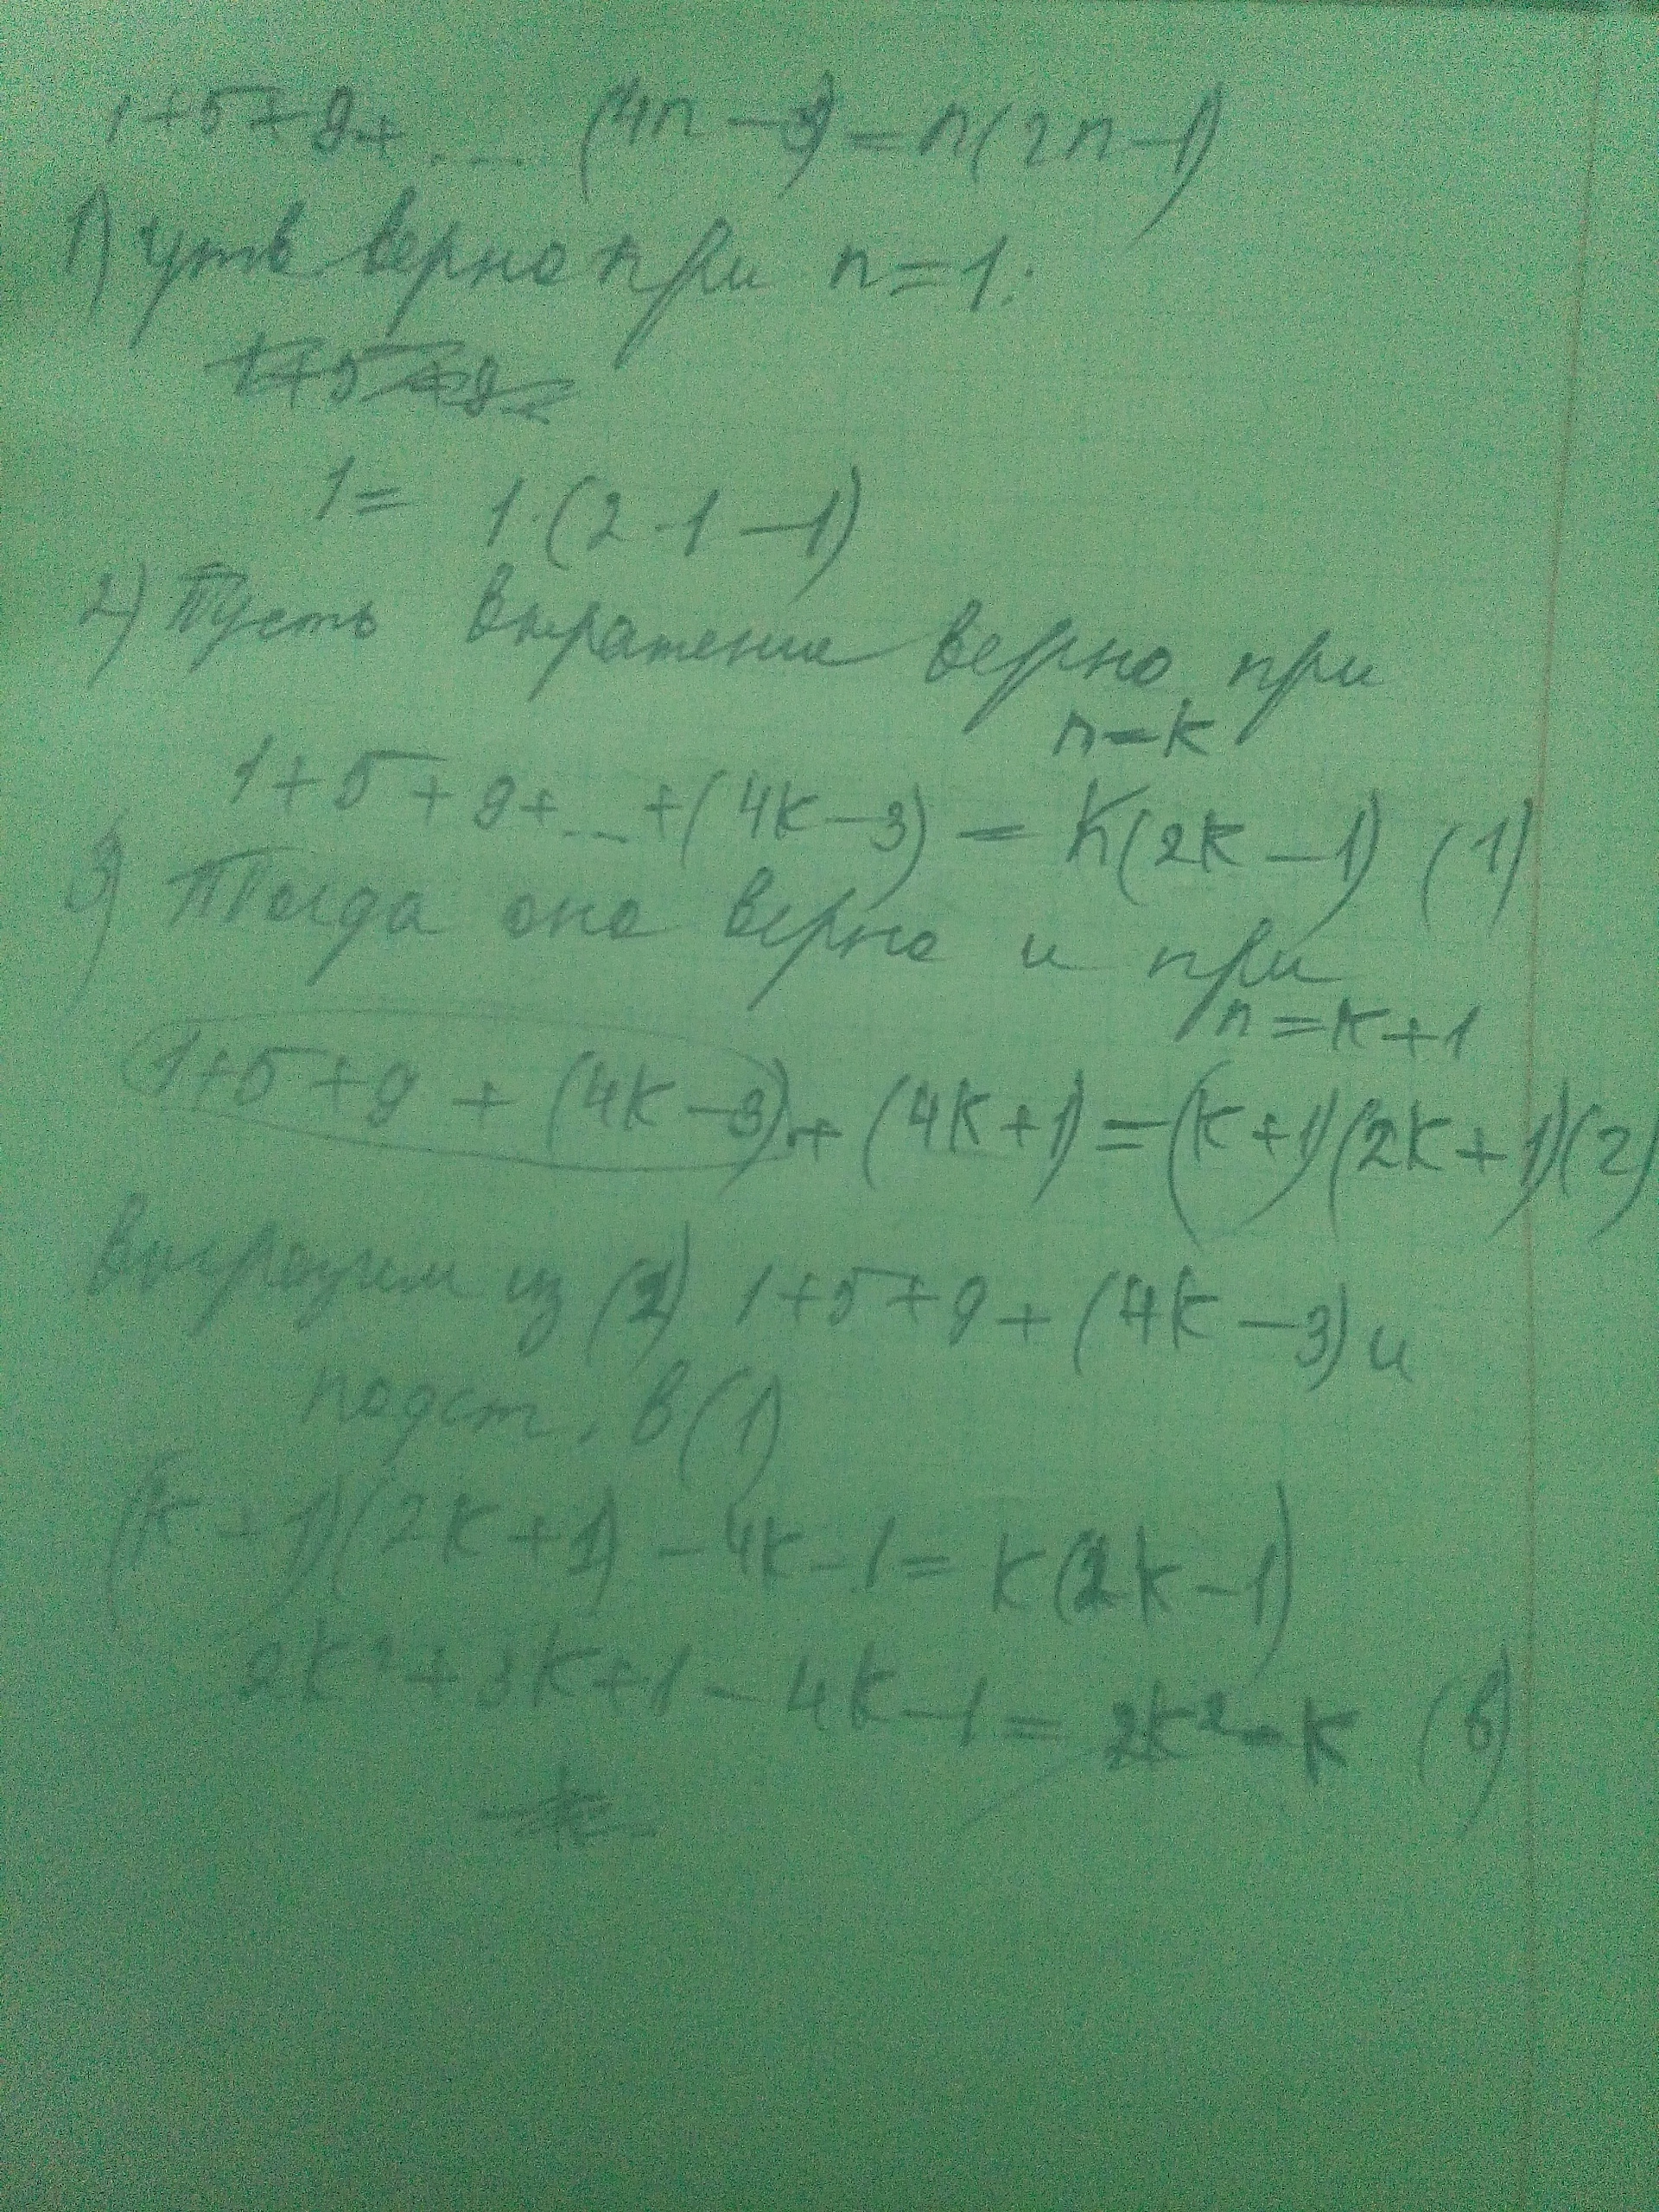 1+5+9+ .... (4n-3)=n(2n-1)
1) утв верно при n=1:
1+5+9=
1= 1·(2·1-1)
2) Пусть выражение верно при
n=k
1+5+9+...+(4k-3)=k(2k-1) (1)
3) Тогда оно верно и при
n=k+1
1+5+9+(4k-3)+(4k+1)=(k+1)(2k+1)(2)
Выразим из (2) 1+5+9+(4k-3) и
подст. в (1)
(k+1)(2k+1)-4k-1=k(2k-1)
2k²+3k+1-4k-1=2k²-k (в)